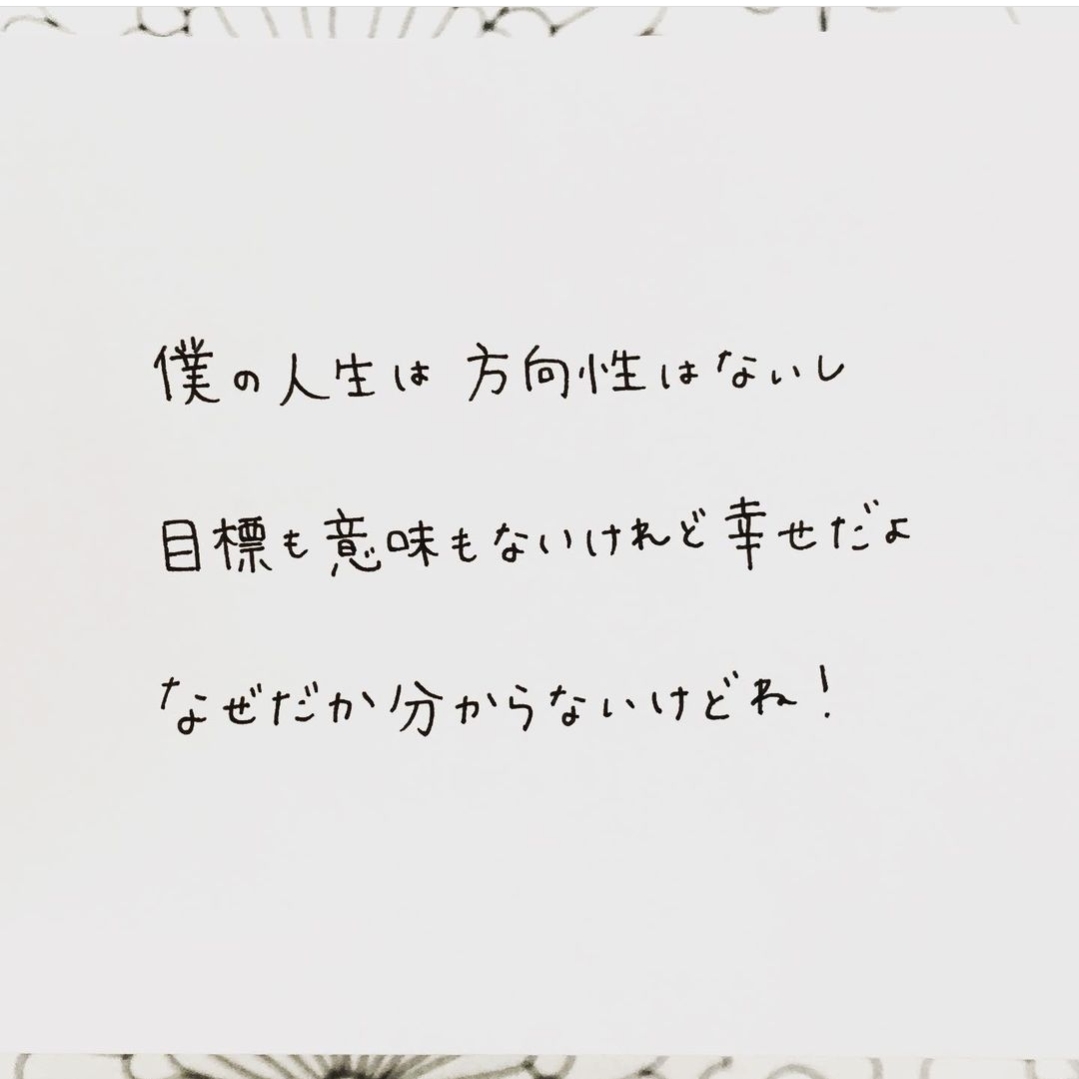 僕の人生は 方向性はないし
目標も意味もないけれど幸せだよ
なぜだか分からないけどね!